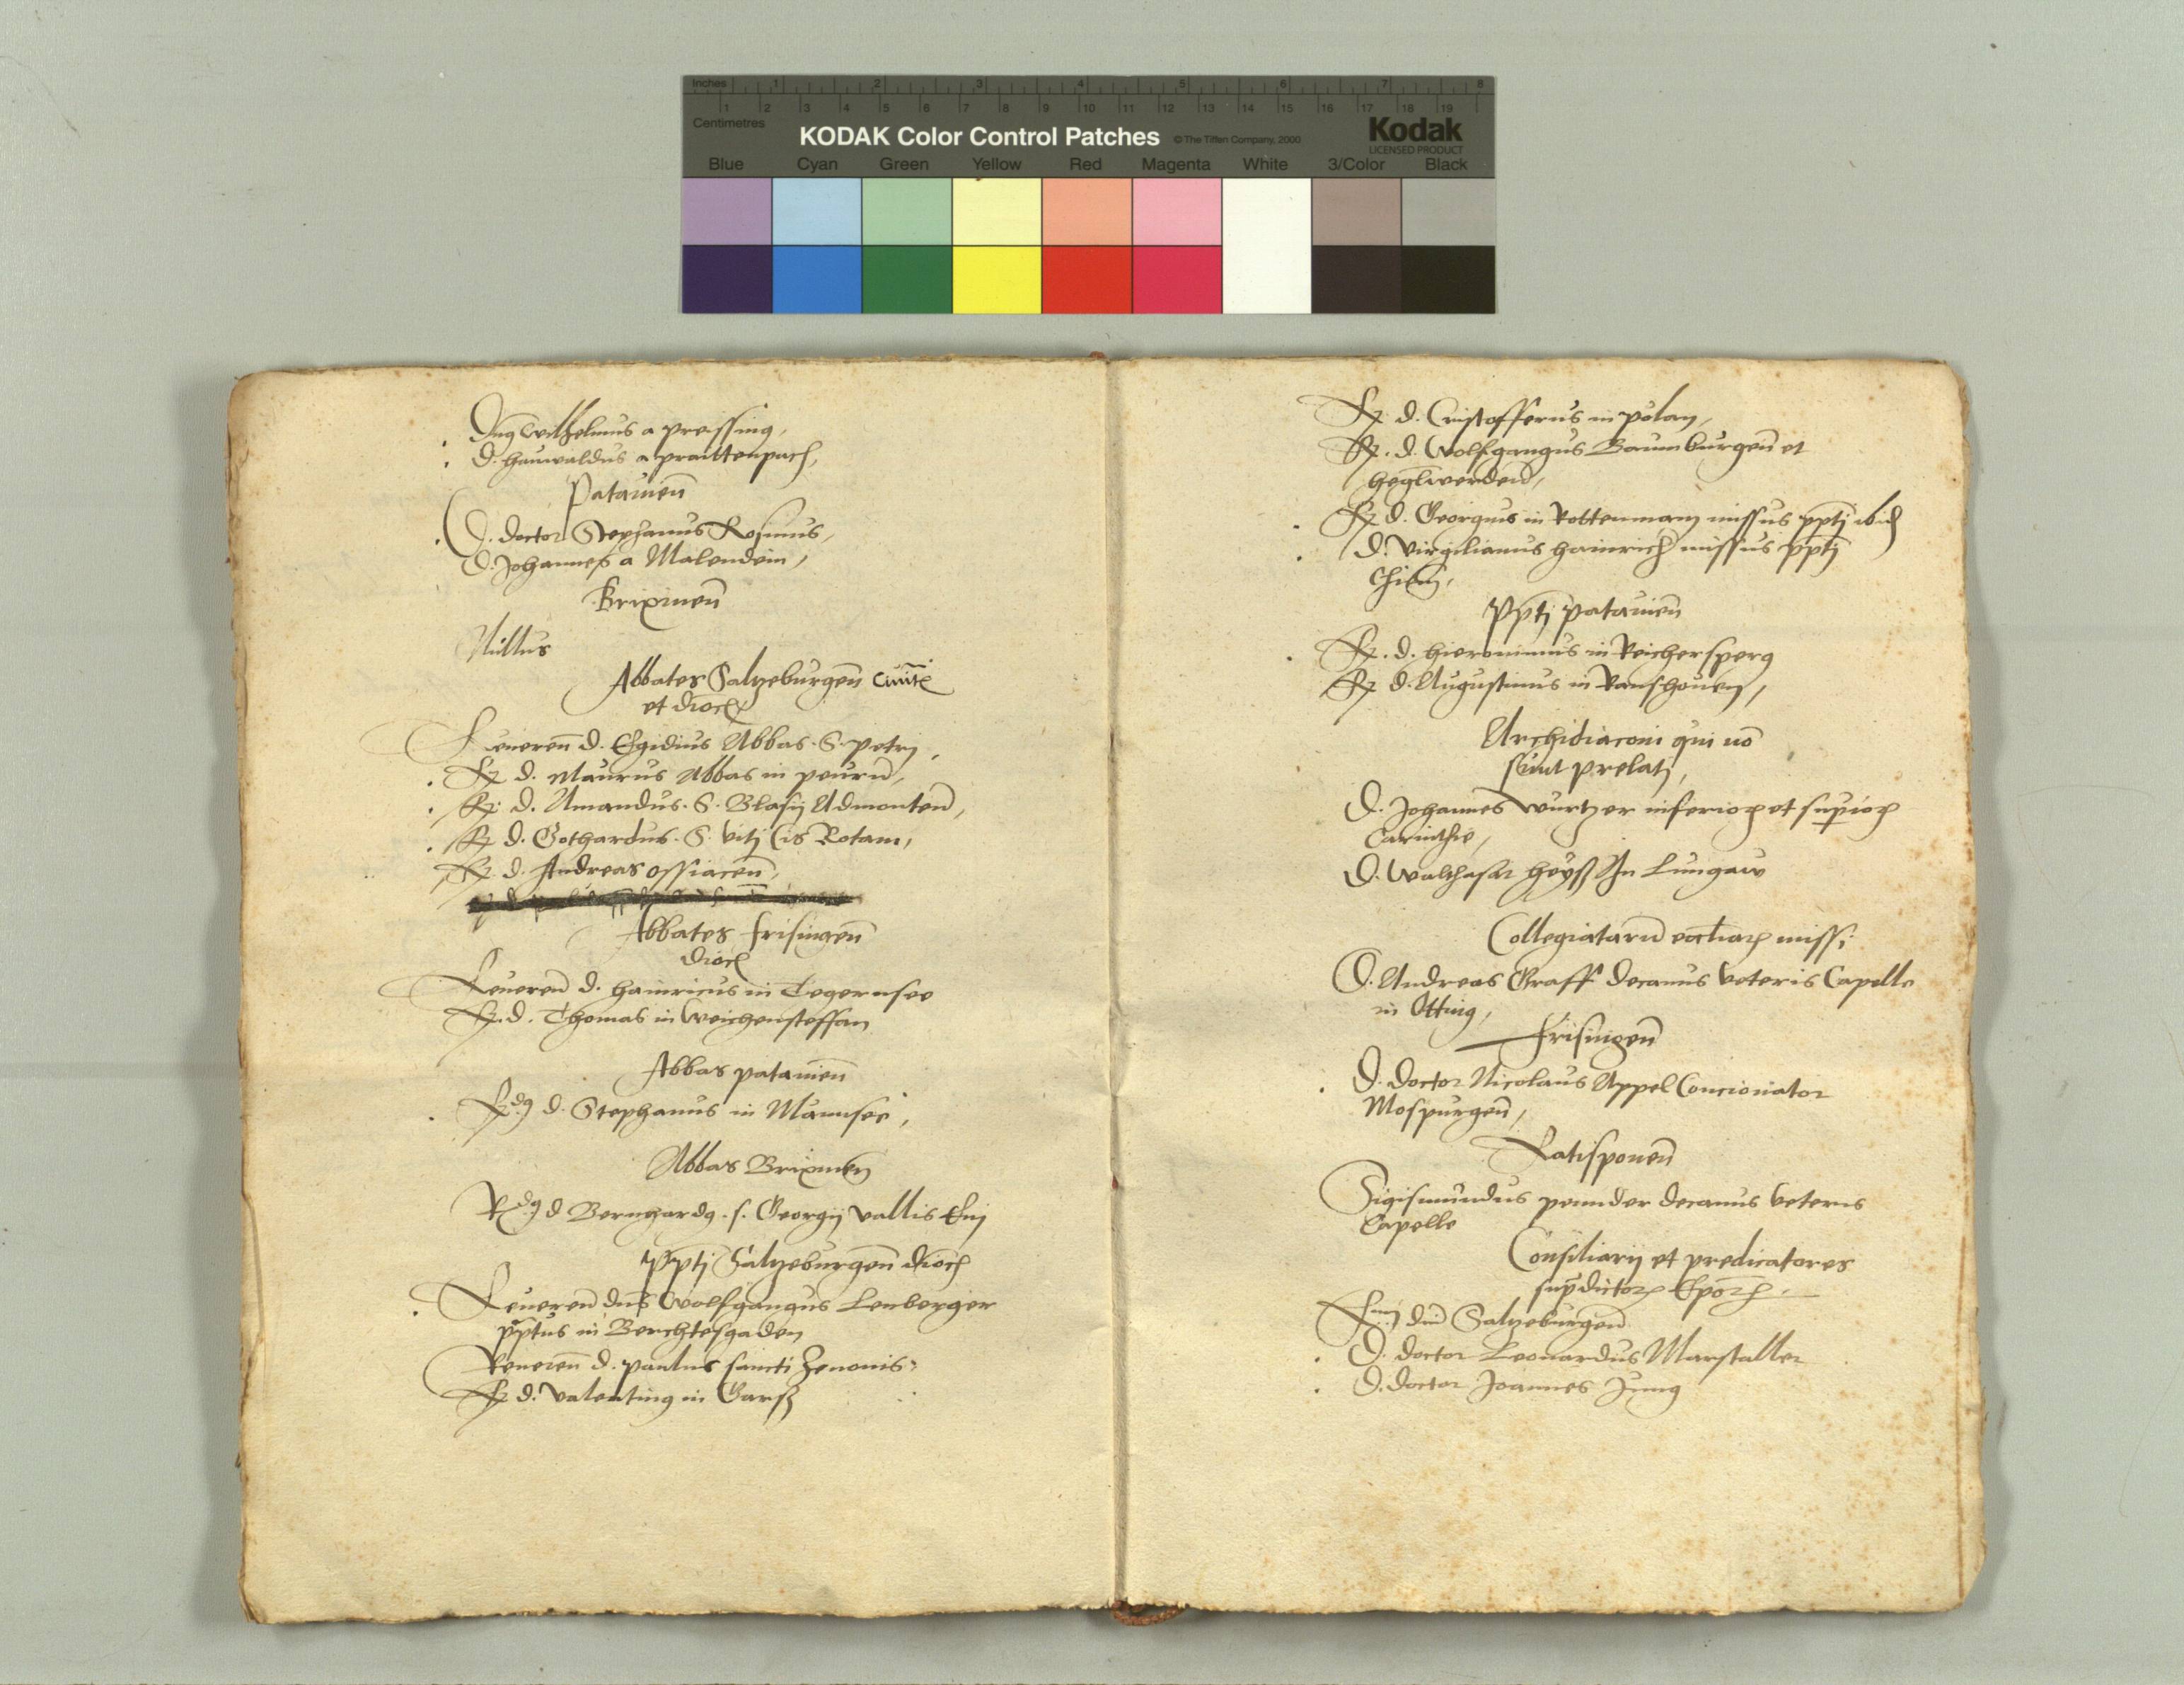 Inches 1 2 3 4 5 6 7 8
1 2 3 4 5 6 7 8 9 10 11 12 13 14 15 16 17 18 19
Centimetres
KODAK Color Control Patches © The Tiffen Company, 2000 Kodak
LICENSED PRODUCT
Blue Cyan Green Yellow Red Magenta White 3/Color Black
Dns Wilhelmus a preissing,
D. hauwaldus a praittenpach,
Patauien
D. doctor Stephanus Rosinus,
D. Johannes a Malendein,
Brixinen
Nullus
Abbates Saltzeburgen Ciuite
et dioc
Reueren d. Egidius Abbas S. petrj,
R. d. Maurus Abbas in peurn,
R. d. Amandus S. Blasij Admonten,
R. d. Gothardus S. Vitj Cis Rotam,
R. d. Andreas Ossiacen,
Abbates Frisingen
dioc
Reueren d. hainricus in Tegernsee
R. d. Thomas in Weichensteffan
Abbas patauien
Rdus d. Stephanus in Mannsee,
Abbas Brixinen
Rdus d Bernhardus s. Georgij vallis Enj
Pptj Saltzeburgen dioc
Reueren dns Wolfgangus Lenberger
pptus in Berchtesgaden
Reueren d. paulus sancti Zenonis
R. d. Valentinus in Garsz
R. d. Cristofferus in pölan,
R. d. Wolfgangus Baumburgen et
heglwerden,
R. d. Georgius in Rottenman missus pptj ibid
D. Virgilianus hainrich missus pptj
Chiem,
Pptj patauien
R. d. hieronimus in Reichersperg
R. d. Augustinus in Ranshouen,
Archidiaconi qui no
sunt prelatj,
D. Johannes Wurtzer inferior et superior
Carinthie,
D. Walthasar heyß In Lungaw
Collegiataru eccliar missi
D. Andreas Graff decanus veteris Capelle
in Otting,
Frisingen
D. doctor Nicolaus Appel Concionator
Mospurgen,
Ratisponen
Sigismundus pender decanus veteris
Capelle
Consiliarij et predicatores
supdictor Epor.
Rmj dni Saltzeburgen
D. doctor Leonardus Marstaller
D. doctor Joannes Jung